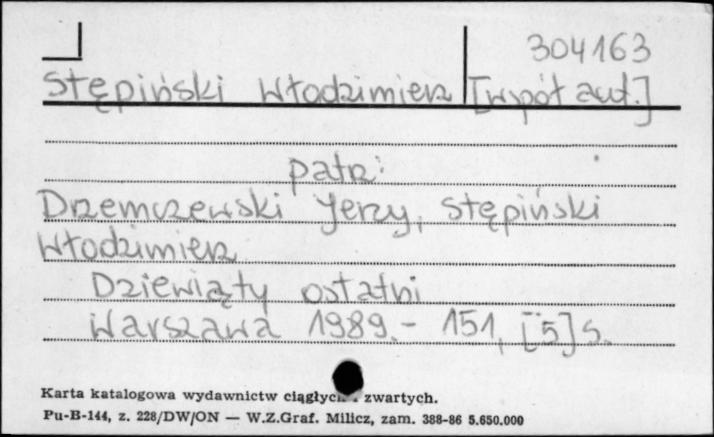 304163
Stępiński Włodzimierz [współaut.]
patrz:
Drzemczewski Jerzy, Stępiński
Włodzimierz
Dziewiąty ostatni
Warszawa 1989.- 151, [5] s.
Karta katalogowa wydawnictw ciągłych zwartych.
Pu-B-144, z. 228/DW/ON — W.Z.Graf. Milicz, zam. 388-86 5.650.000